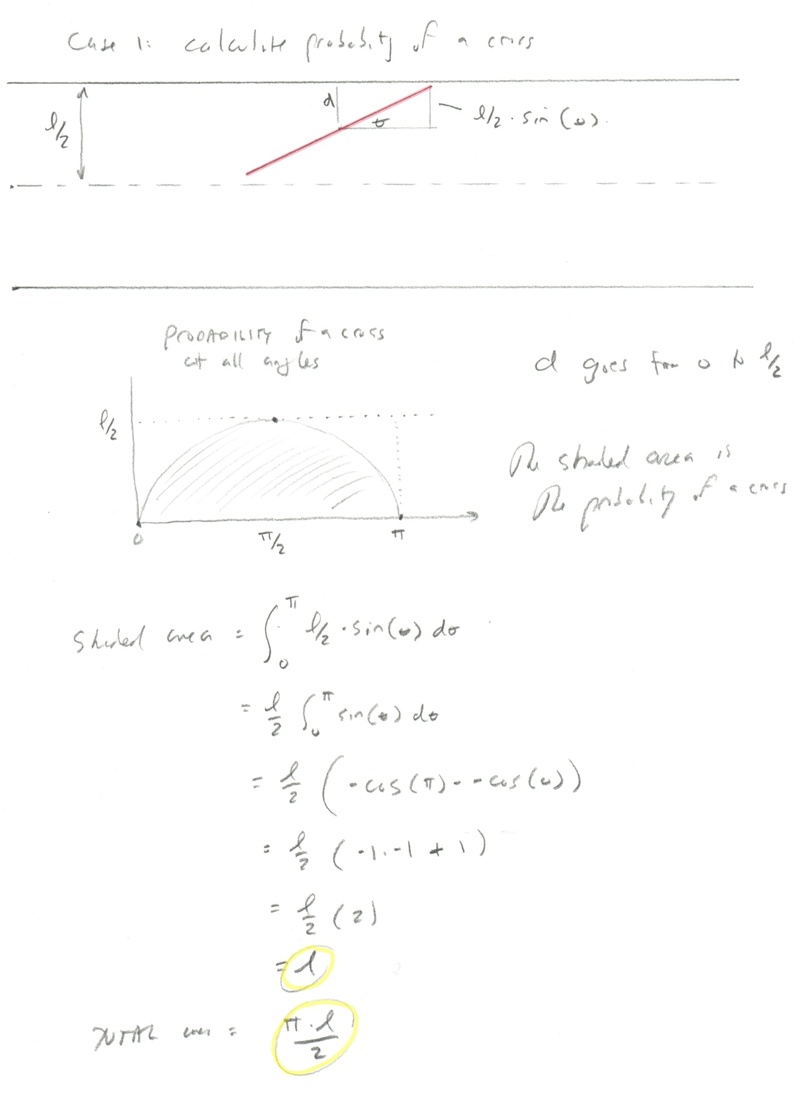 Case 1: calculate probability of a cross
l/2
d
θ
l/2 · sin(θ).
PROBABILITY of a cross
at all angles
d goes from 0 to l/2
l/2
The shaded area is
The probability of a cross
0
π/2
π
Shaded area = ∫₀^π l/2 · sin(θ) dθ
= l/2 ∫₀^π sin(θ) dθ
= l/2 (-cos(π) - -cos(0))
= l/2 (-1·-1 + 1)
= l/2 (2)
= l
TOTAL area = π·l/2